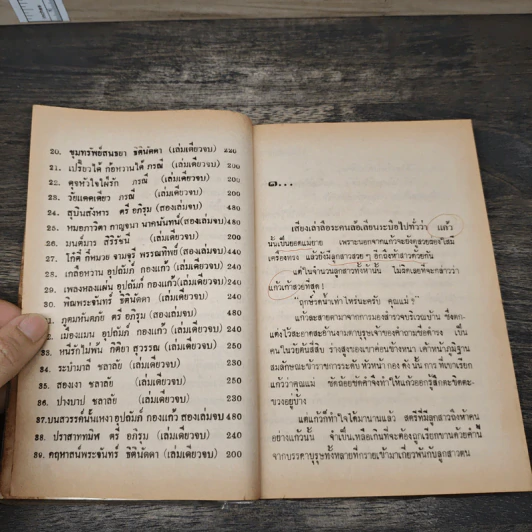 20. ขุมทรัพย์สนธยา ธิตินัดดา (เล่มเดียวจบ) 220
21. เปรี้ยวได้ ก๋อหวานได้ ภรณี (เล่มเดียวจบ) 200
22. ดุจหัวใจใฝ่รัก ภรณี (เล่มเดียวจบ) 200
23. วัยแดดเดียว ภรณี (เล่มเดียวจบ) 200
24. สุบินสังหาร ตรี อภิรุม (สองเล่มจบ) 480
25. หมอภาวิตา กาญจนา นาคนันทน์(สองเล่มจบ) 480
26. มนต์มาร สิริรัชนี (เล่มเดียวจบ) 200
27. โก้ตี๋ กี่หมวย จามจุรี พรรณทิพย์ (สองเล่มจบ) 440
28. เกลือหวาน อุปถัมภ์ กองแก้ว (เล่มเดียวจบ) 240
29. เพลงหลงแผ่น อุปถัมภ์ กองแก้ว(เล่มเดียวจบ) 240
30. พิณพระจันทร์ ธิตินัดดา (เล่มเดียวจบ) 240
ภูตมหันตภัย ตรี อภิรุม (สองเล่มจบ) 480
เมืองแมน อุปถัมภ์ กองแก้ว (เล่มเดียวจบ) 240
33. หนี้รักไม่พ้น กิติยา สุวรรณ (เล่มเดียวจบ) 230
34. ระบำมาลี ชลาลัย (เล่มเดียวจบ) 230
35. สองเงา ชลาลัย (เล่มเดียวจบ) 250
36. ปางบาป ชลาลัย (เล่มเดียวจบ) 230
37. บนสวรรค์นั้นเหงา อุปถัมภ์ กองแก้ว สองเล่มจบ 480
38. ปราสาททมิฬ ตรี อภิรุม (เล่มเดียวจบ) 240
39. คฤหาสน์พระจันทร์ ธิตินัดดา (เล่มเดียวจบ) 200
๑...
เสียงเล่าลือระคนล้อเลียนระบือไปทั่วว่า แก้ว
นั้นเป็นยอดแม่ยาย เพราะนอกจากแก้วจะยังดูสวยสองใสม
เครื่องทรง แล้วยังมีลูกสาวสวย ๆ อีกถึงห้าสาวด้วยกัน
แต่ในจำนวนลูกสาวทั้งห้านั้น ไม่รีดเลยที่จะกล่าวว่า
แก้วเก้าสวยที่สุด !
"ถูกชักนำเท่าไหร่นะครับ คุณแม่ !"
แก้วสะสายตามาจากการมองสำรวจบริเวณบ้าน ซึ่งตก-
แต่งไว้สะอาดสะอ้านงามตาบุรุษเจ้าของคำถามชื่อดำรง เป็น
คนในวัยต้นสี่สิบ ร่างสูงของเขาค่อนข้างหนา
แก้วว่าคุณแม่
ขวงอยู่บ้าง
แต่แก้วก็ทำใจได้มานานแล้ว สตรีที่มีลูกสาวถึงห้าคน
อย่างแก้วนั้น จำเป็นเหลือเกินที่จะต้องถูกเรียกขานด้วยคำนี้
จากบรรดาบุรุษทั้งหลายที่กรายเข้ามาเกี่ยวพันกับลูกสาวตน